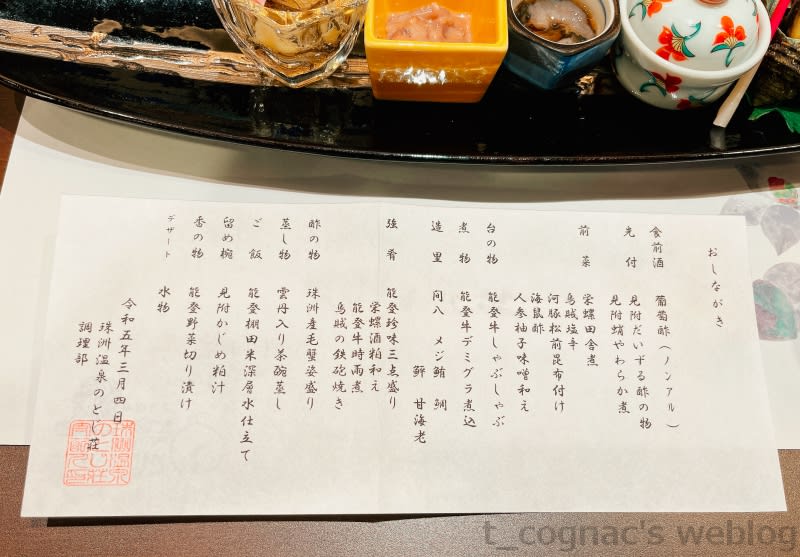 おしながき
食前酒 葡萄酢（ノンアル）
先付 見附だいずる酢の物
見附蛸やわらか煮
前菜 栄螺田舎煮
烏賊塩辛
河豚松前昆布付け
海鼠酢
人参柚子味噌和え
台の物 能登牛しゃぶしゃぶ
煮物 能登牛デミグラ煮込
造里 間八 メジ鮪 鯛
鰤 甘海老
強肴 能登珍味三点盛り
栄螺酒粕和え
能登牛時雨煮
烏賊の鉄砲焼き
酢の物 珠洲産毛蟹姿盛り
蒸し物 雲丹入り茶碗蒸し
ご飯 能登棚田米深層水仕立て
留め椀 見附かじめ粕汁
香の物 能登野菜切り漬け
デザート 水物
令和五年三月四日
珠洲温泉のとじ荘
調理部
t_cognac's weblog